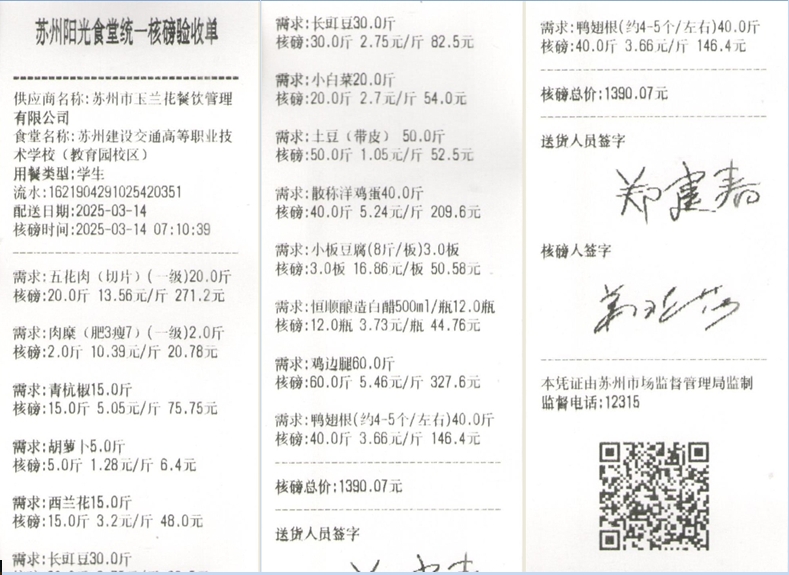 苏州阳光食堂统一核磅验收单
供应商名称:苏州市玉兰花餐饮管理
有限公司
食堂名称:苏州建设交通高等职业技
术学校（教育园校区）
用餐类型:学生
流水:1621904291025420351
配送日期:2025-03-14
核磅时间:2025-03-14 07:10:39
需求:五花肉（切片）(一级)20.0斤
核磅:20.0斤 13.56元/斤 271.2元
需求:肉糜（肥3瘦7）(一级)2.0斤
核磅:2.0斤 10.39元/斤 20.78元
需求:青杭椒15.0斤
核磅:15.0斤 5.05元/斤 75.75元
需求:胡萝卜5.0斤
核磅:5.0斤 1.28元/斤 6.4元
需求:西兰花15.0斤
核磅:15.0斤 3.2元/斤 48.0元
需求:长豇豆30.0斤
需求:长豇豆30.0斤
核磅:30.0斤 2.75元/斤 82.5元
需求:小白菜20.0斤
核磅:20.0斤 2.7元/斤 54.0元
需求:土豆（带皮） 50.0斤
核磅:50.0斤 1.05元/斤 52.5元
需求:散称洋鸡蛋40.0斤
核磅:40.0斤 5.24元/斤 209.6元
需求:小板豆腐(8斤/板)3.0板
核磅:3.0板 16.86元/板 50.58元
需求:恒顺酿造白醋500ml/瓶12.0瓶
核磅:12.0瓶 3.73元/瓶 44.76元
需求:鸡边腿60.0斤
核磅:60.0斤 5.46元/斤 327.6元
需求:鸭翅根(约4-5个/左右)40.0斤
核磅:40.0斤 3.66元/斤 146.4元
核磅总价:1390.07元
送货人员签字
需求:鸭翅根(约4-5个/左右)40.0斤
核磅:40.0斤 3.66元/斤 146.4元
核磅总价:1390.07元
送货人员签字
郑建春
核磅人签字
本凭证由苏州市场监督管理局监制
监督电话:12315